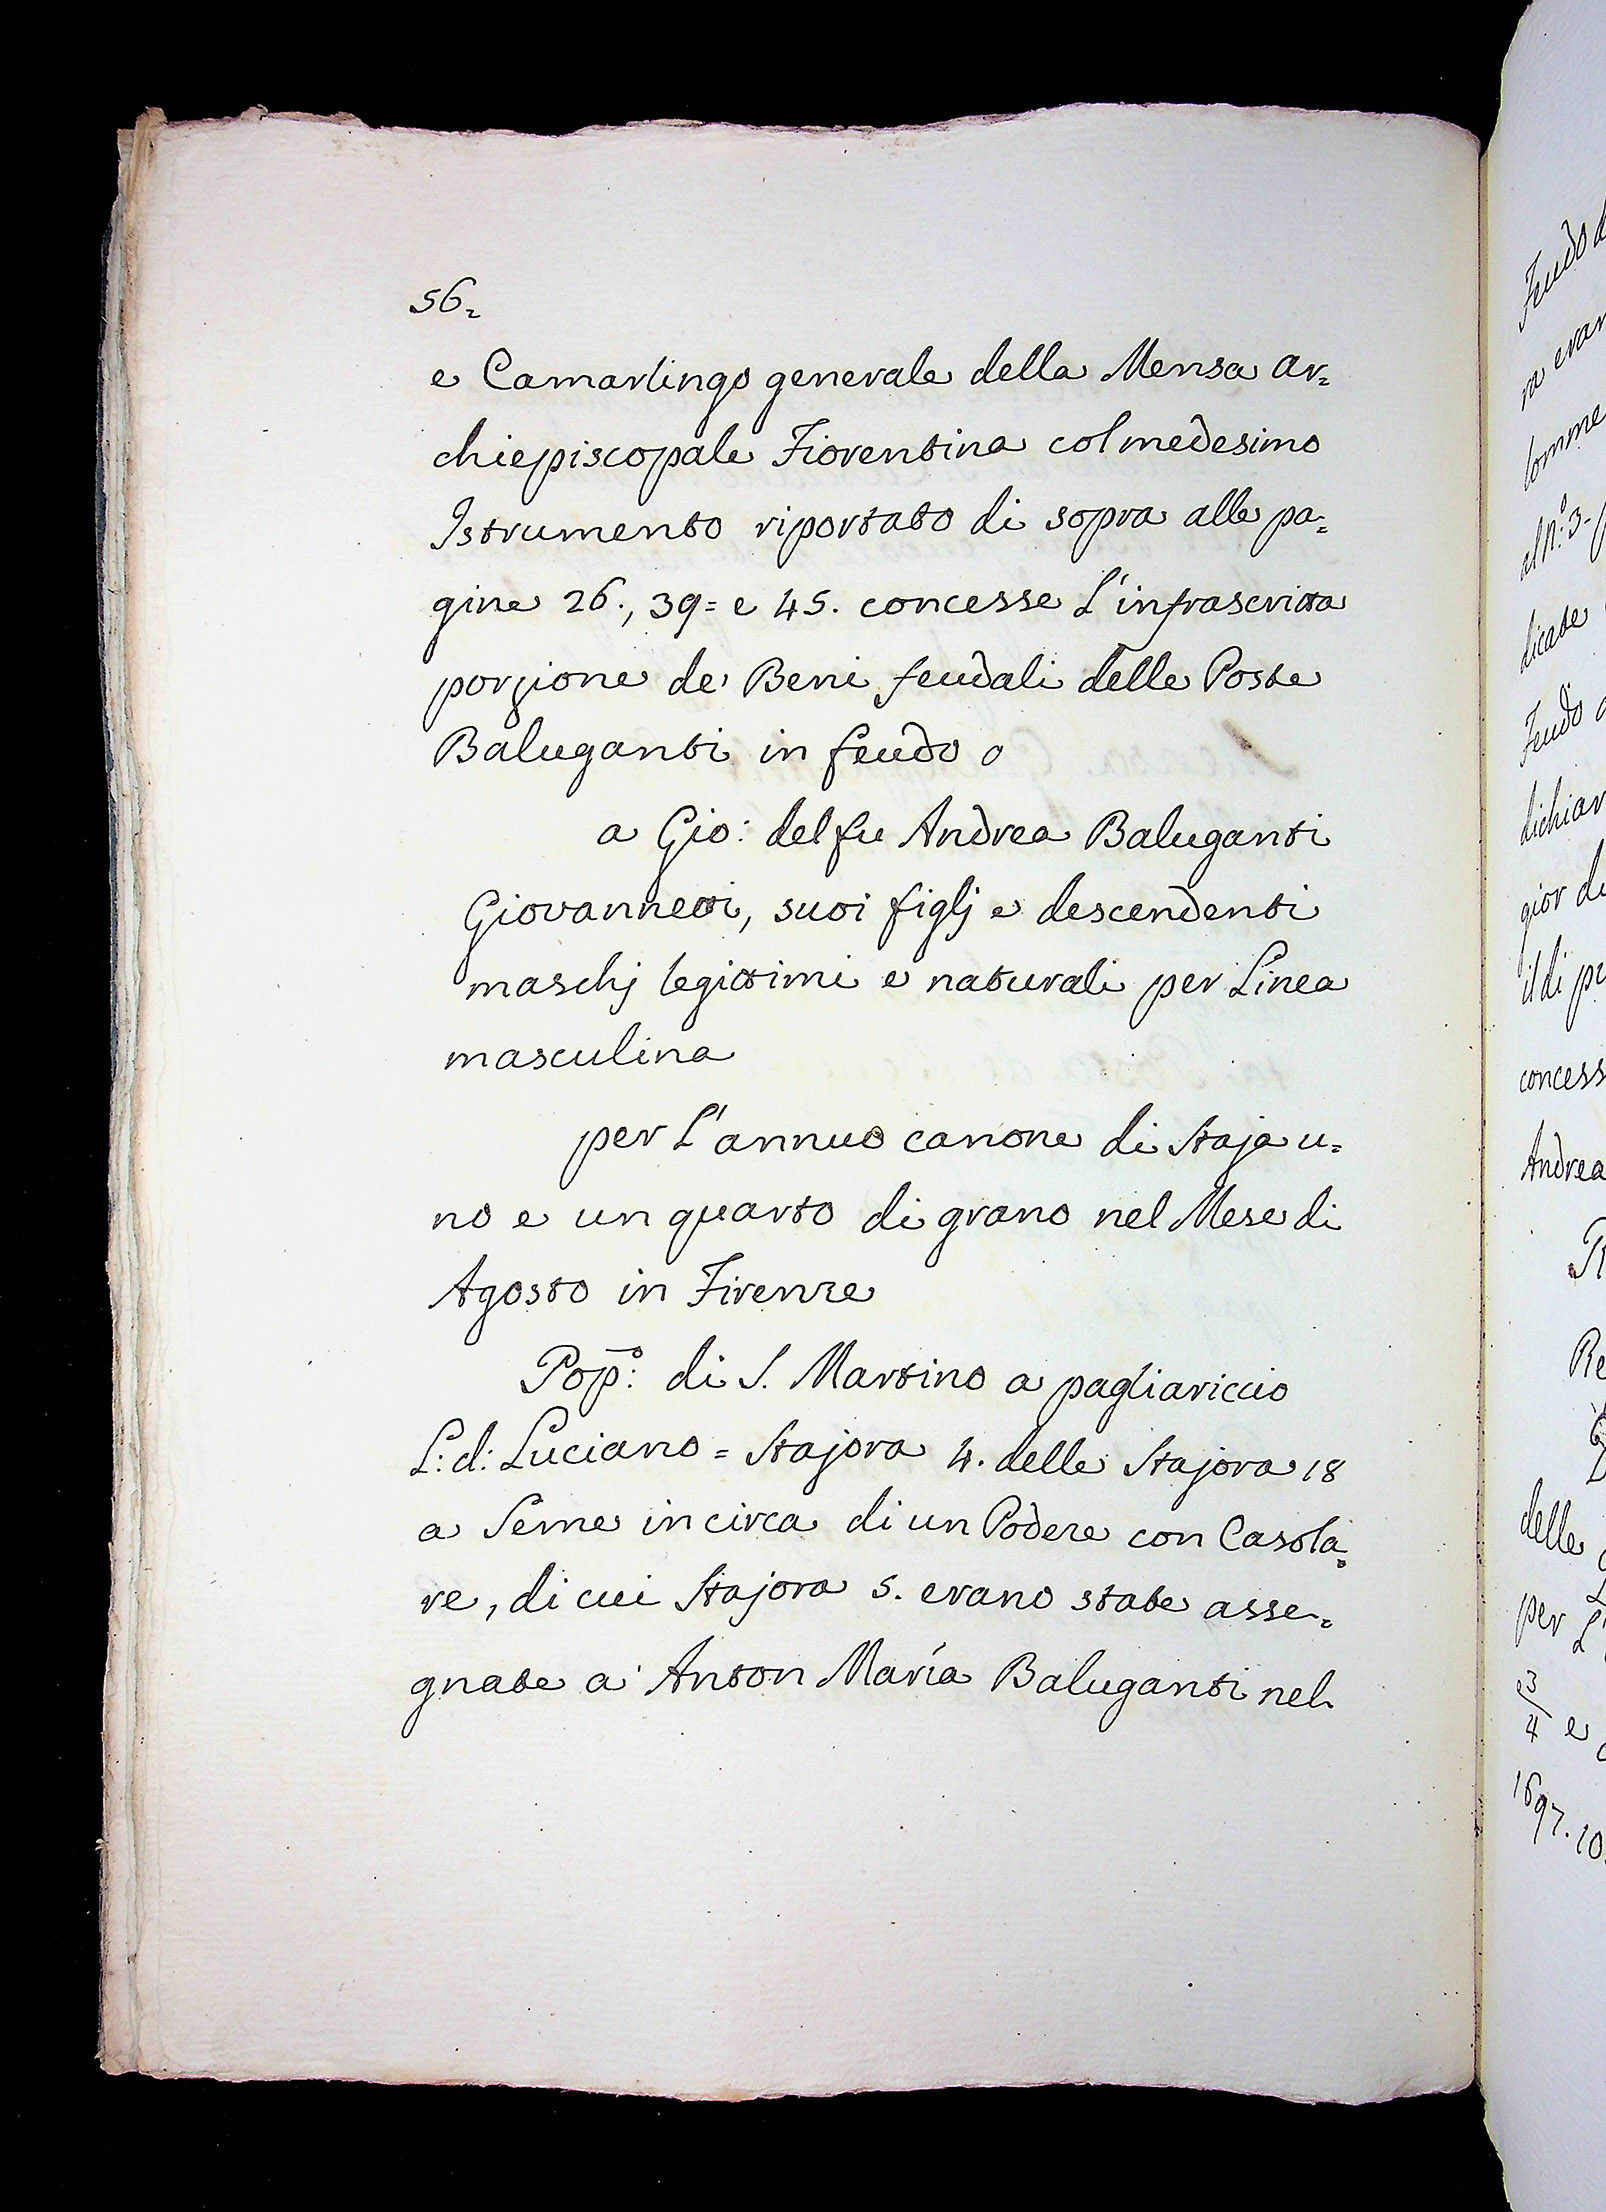 56=
e Camarlingo generale della Mensa Ar=
chiepiscopale Fiorentina col medesimo
Istrumento riportato di sopra alle pa=
gine 26., 39= e 45. concesse L'infrascritta
porzione de' Beni feudali delle Poste
Baluganti in feudo
a Gio: del fu Andrea Baluganti
Giovannetti, suoi figlj e descendenti
maschj legittimi e naturali per Linea
masculina
per L'annuo canone di Staja u=
no e un quarto di grano nel Mese di
Agosto in Firenze
Pop:º di S. Martino a pagliariccio
L: d: Luciano = Stajora 4. delle Stajora 18
a Seme in circa di un Podere con Casola=
re, di cui Stajora 5. erano state asse=
gnate a Anton Maria Baluganti nel
Feudo
ra eran
al N:º 3-
dicate
Feudo
dichiar
gior de
il di pr
concess
Andrea
Re
delle
per L'
3/4 e
1697. 10